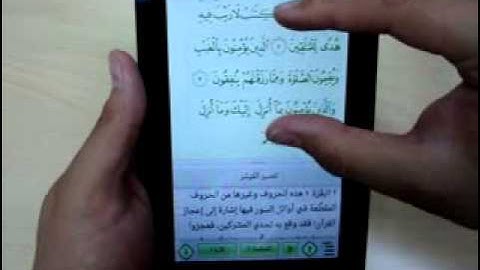 ٱلۡكِتَٰبُ لَا رَيۡبَ فِيهِ
هُدٗى لِّلۡمُتَّقِينَ ٢ ٱلَّذِينَ يُؤۡمِنُونَ بِٱلۡغَيۡبِ
وَيُقِيمُونَ ٱلصَّلَوٰةَ وَمِمَّا رَزَقۡنَٰهُمۡ يُنفِقُونَ ٣
وَٱلَّذِينَ يُؤۡمِنُونَ بِمَآ أُنزِلَ إِلَيۡكَ وَمَآ أُنزِلَ
تفسير المُيَسَّر
١ البقرة ١ هذه الحروف وغيرها من الحروف
المقطَّعة في أوائل السور فيها إشارة إلى إعجاز
القرآن؛ فقد وقع به تحدي المشركين، فعجزوا